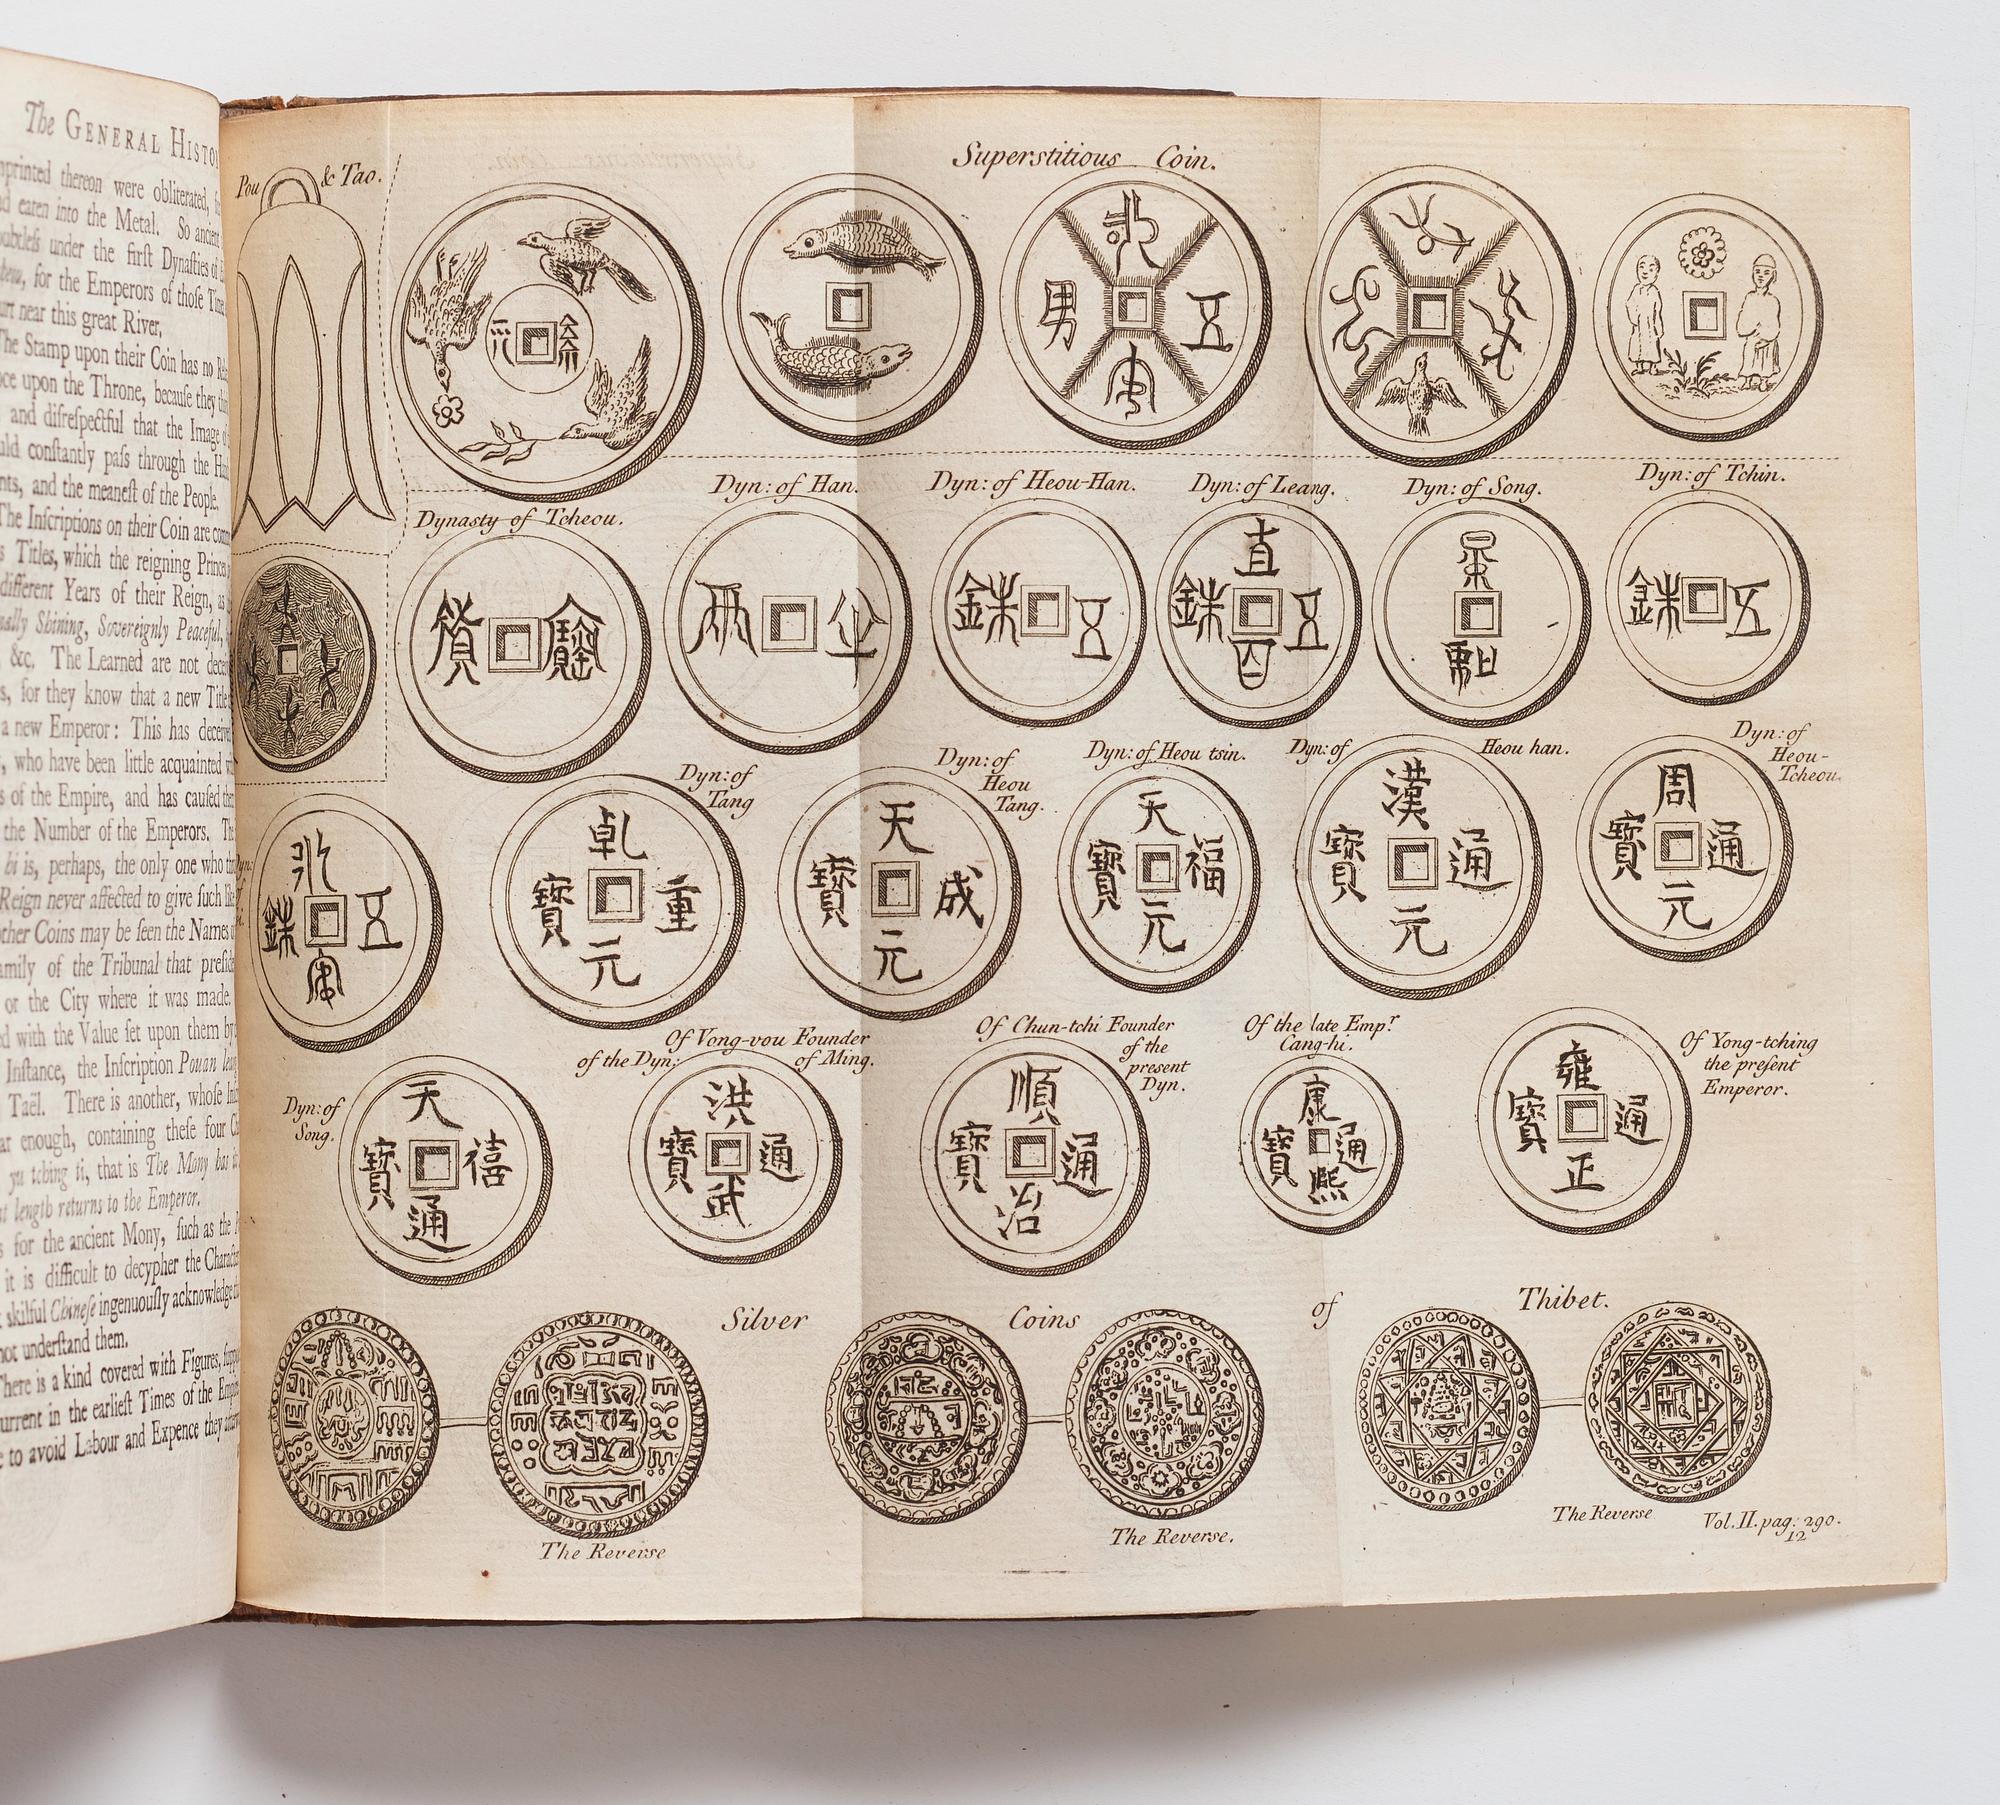 The GENERAL HISTO
mprinted thereon were obliterated,
eaten into the Metal. So ancient
oubtleſs under the firſt Dynaſties of
for the Emperors of thoſe
near this great River.
The Stamp upon their Coin has no
upon the Throne, becauſe they
and diſreſpectful that the Image
conſtantly paſs through the
and the meaneſt of the People.
The Inſcriptions on their Coin are
Titles, which the reigning
different Years of their Reign, as
Shining, Sovereignly Peaceful,
&c. The Learned are not
for they know that a new
a new Emperor: This has
who have been little acquainted
of the Empire, and has cauſed
the Number of the Emperors.
hi is, perhaps, the only one who
Reign never affected to give ſuch
other Coins may be ſeen the Names
of the Tribunal that
or the City where it was made.
with the Value ſet upon them by
Inſtance, the Inſcription Pouan
Taël. There is another, whoſe
enough, containing theſe four
yu tching ti, that is The Mony has
length returns to the Emperor.
for the ancient Mony, ſuch as the
it is difficult to decypher the
ſkilful Chineſe ingenuouſly acknowledge
not underſtand them.
There is a kind covered with Figures,
current in the earlieſt Times of the
to avoid Labour and Expence they
Pou & Tao.
Superstitious Coin.
男 五
Dynasty of Tcheou.
Dyn: of Han.
Dyn: of Heou-Han.
Dyn: of Leang.
Dyn: of Song.
Dyn: of Tchin.
貨 寶
兩
銖 五
直
銖 五
百
銖 五
Dyn: of
Tang
Dyn: of
Heou
Tang.
Dyn: of Heou tsin.
Dyn: of Heou han.
Dyn: of
Heou-
Tcheou.
銖 五
乾
寶 重
元
天
寶 成
元
天
寶 福
元
漢
寶 通
元
周
寶 通
元
Dyn: of
Song.
Of Vong-vou Founder
of the Dyn: of Ming.
Of Chun-tchi Founder
of the
present
Dyn.
Of the late Empr.
Cang-hi.
Of Yong-tching
the preſent
Emperor.
天
寶 禧
通
洪
寶 通
武
順
寶 通
治
康
寶 通
熙
雍
寶 通
正
Silver Coins of Thibet.
The Reverse
The Reverse.
The Reverse
Vol. II. pag: 290.
12